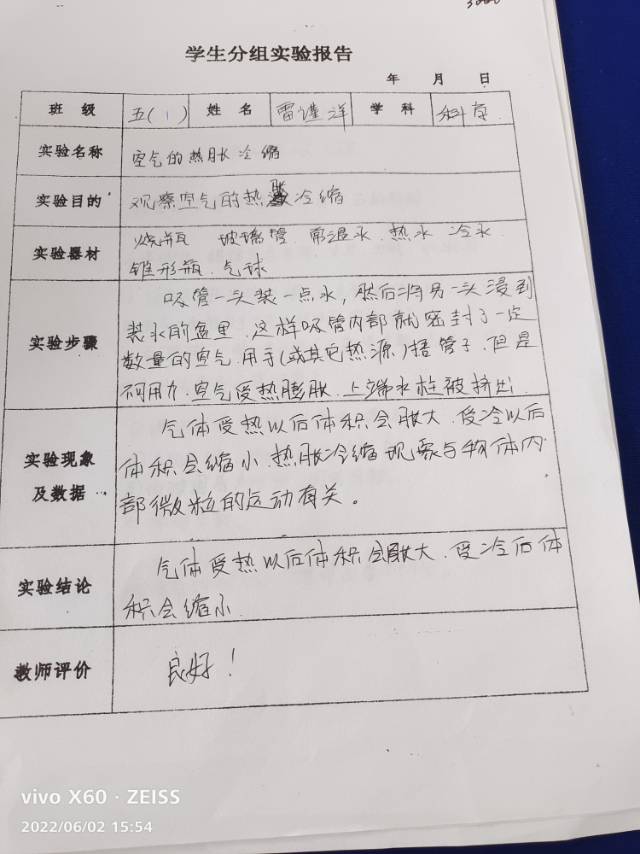 学生分组实验报告
年 月 日
班 级 五(1) 姓 名 雷谨洋 学 科 科学
实验名称 空气的热胀冷缩
实验目的 观察空气的热胀冷缩
实验器材 烧瓶 玻璃管 常温水 热水 冷水
锥形瓶 气球
实验步骤 吸管一头装一点水,然后将另一头浸到
装水的盆里 这样吸管内部就密封了一定
数量的空气 用手(或其它热源)捂管子 但是
不用力 空气受热膨胀 上端水柱被挤出
实验现象及数据 气体受热以后体积会胀大 受冷以后
体积会缩小 热胀冷缩现象与物体内
部微粒的运动有关。
实验结论 气体受热以后体积会胀大 受冷后体
积会缩小
教师评价 良好!
vivo X60 · ZEISS
2022/06/02 15:54